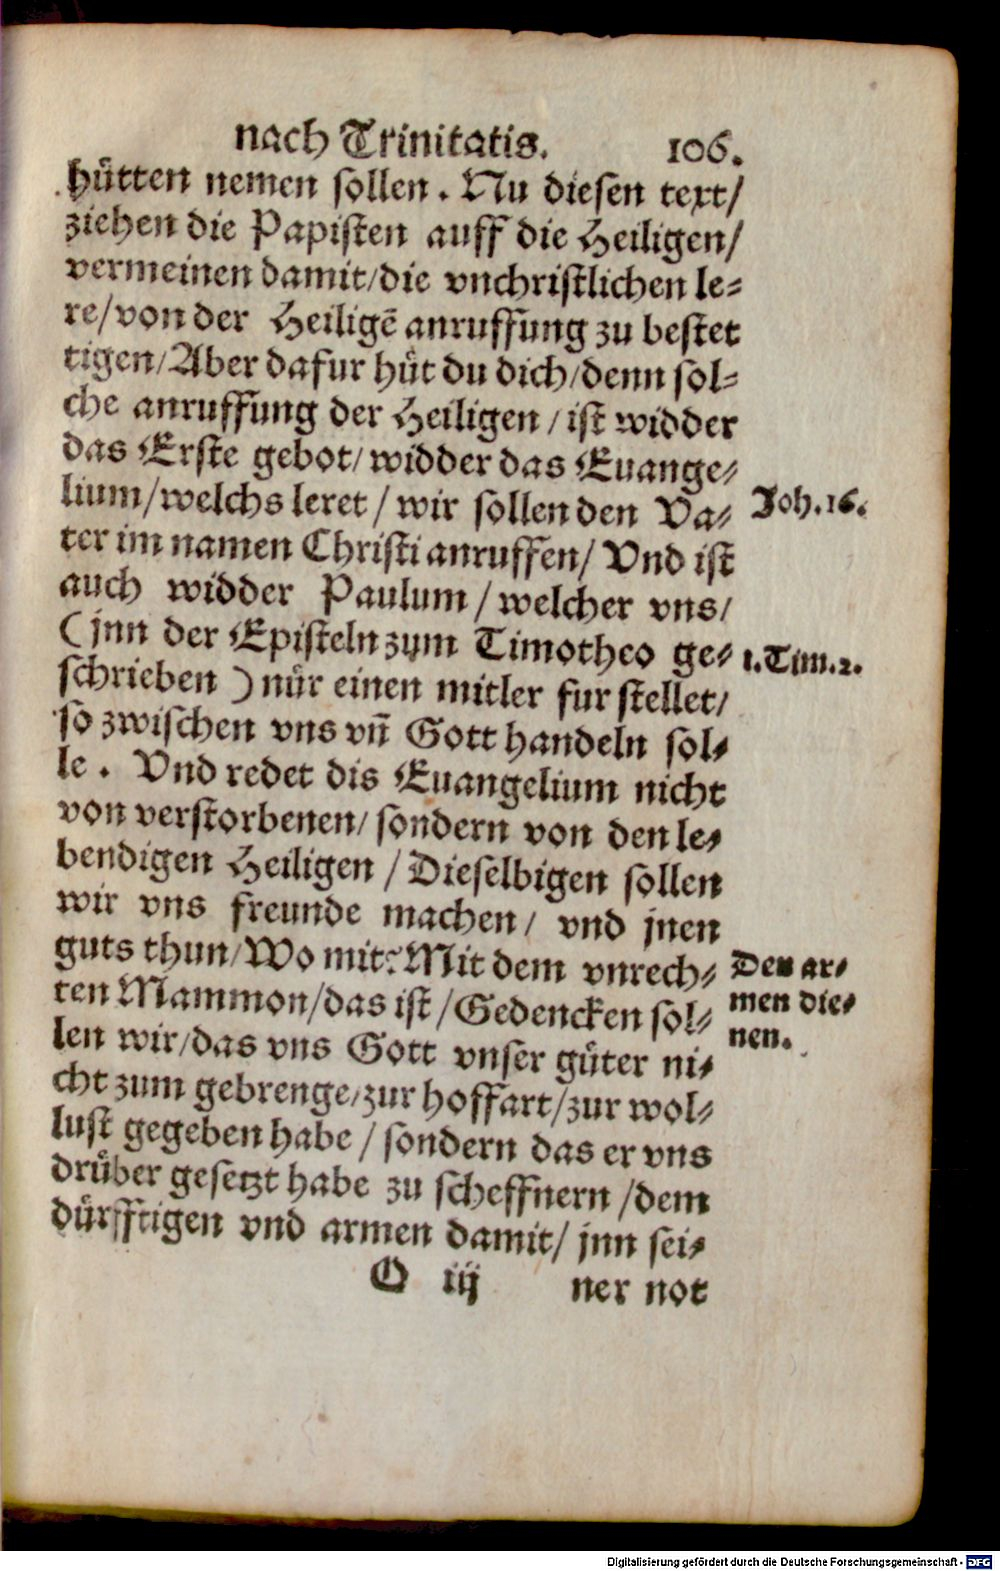 nach Trinitatis. 106.
hütten nemen sollen. Nu diesen text/
ziehen die Papisten auff die Heiligen/
vermeinen damit/die vnchristlichen le⸗
re/von der Heiligē anruffung zu bestet
tigen/Aber dafur hüt du dich/denn sol⸗
che anruffung der Heiligen/ist widder
das Erste gebot/widder das Euange⸗
lium/welchs leret/wir sollen den Va⸗
Joh.16.
ter im namen Christi anruffen/Vnd ist
auch widder Paulum/welcher vns/
(jnn der Episteln zum Timotheo ge⸗
1.Tim.2.
schrieben) nür einen mitler fur stellet/
so zwischen vns vn̄ Gott handeln sol⸗
le. Vnd redet dis Euangelium nicht
von verstorbenen/sondern von den le⸗
bendigen Heiligen/Dieselbigen sollen
wir vns freunde machen/vnd jnen
guts thun/Wo mit? Mit dem vnrech⸗
Den ar⸗
men die⸗
nen.
ten Mammon/das ist/Gedencken sol⸗
len wir/das vns Gott vnser güter ni⸗
cht zum gebrenge/zur hoffart/zur wol⸗
lust gegeben habe/sondern das er vns
drüber gesetzt habe zu scheffnern/dem
dürfftigen vnd armen damit/jnn sei⸗
O iij ner not
Digitalisierung gefördert durch die Deutsche Forschungsgemeinschaft - DFG